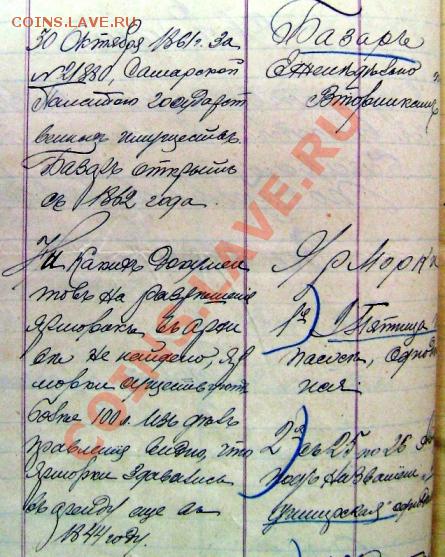 COINS.LAVE.RU
30 Октября 1861 г. за
№ 21880, Самарской
Палатою государст
венныхъ имуществъ.
Базаръ открытъ
съ 1862 года.
Никакихъ докумен
товъ на разрешение
ярморокъ въ архи
ве не найдено, яр
морки существуютъ
более 100 л. изъ делъ
правления видно, что
ярморки сдавались
въ аренду еще въ
1844 году.
Базаръ
Еженедельно
Вторникамъ
Ярморки
1я Пятница
пасхи, однод
ная.
2я съ 25 по 26
подъ названiем
COINS.LAVE.RU